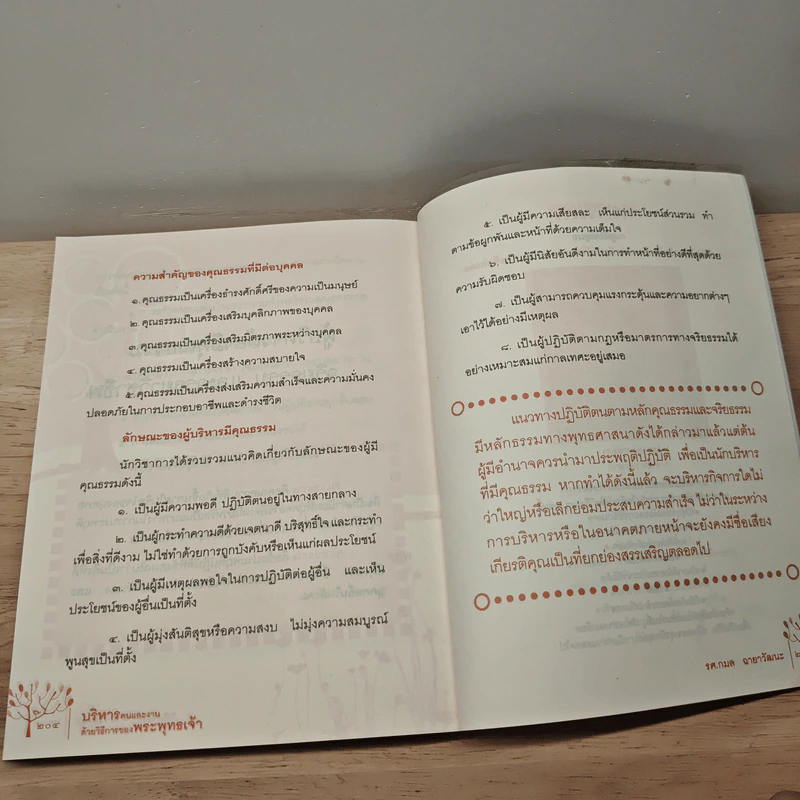 ความสำคัญของคุณธรรมที่มีต่อบุคคล
๑. คุณธรรมเป็นเครื่องธำรงศักดิ์ศรีของความเป็นมนุษย์
๒. คุณธรรมเป็นเครื่องเสริมบุคลิกภาพของบุคคล
๓. คุณธรรมเป็นเครื่องเสริมมิตรภาพระหว่างบุคคล
๔. คุณธรรมเป็นเครื่องสร้างความสบายใจ
๕. คุณธรรมเป็นเครื่องส่งเสริมความสำเร็จและความมั่นคง
ปลอดภัยในการประกอบอาชีพและดำรงชีวิต
ลักษณะของผู้บริหารมีคุณธรรม
นักวิชาการได้รวบรวมแนวคิดเกี่ยวกับลักษณะของผู้มี
คุณธรรมดังนี้
๑. เป็นผู้มีความพอดี ปฏิบัติตนอยู่ในทางสายกลาง
๒. เป็นผู้กระทำความดีด้วยเจตนาดี บริสุทธิ์ใจ และกระทำ
เพื่อสิ่งที่ดีงาม ไม่ใช่ทำด้วยการถูกบังคับหรือเห็นแก่ผลประโยชน์
๓. เป็นผู้มีเหตุผลพอใจในการปฏิบัติต่อผู้อื่น และเห็น
ประโยชน์ของผู้อื่นเป็นที่ตั้ง
๔. เป็นผู้มุ่งสันติสุขหรือความสงบ ไม่มุ่งความสมบูรณ์
พูนสุขเป็นที่ตั้ง
๒๐๔
บริหารคนและงาน
ด้วยวิธีการของพระพุทธเจ้า
๕. เป็นผู้มีความเสียสละ เห็นแก่ประโยชน์ส่วนรวม ทำ
ตามข้อผูกพันและหน้าที่ด้วยความเต็มใจ
๖. เป็นผู้มีนิสัยอันดีงามในการทำหน้าที่อย่างดีที่สุดด้วย
ความรับผิดชอบ
๗. เป็นผู้สามารถควบคุมแรงกระตุ้นและความอยากต่างๆ
เอาไว้ได้อย่างมีเหตุผล
๘. เป็นผู้ปฏิบัติตามกฎหรือมาตรการทางจริยธรรมได้
อย่างเหมาะสมแก่กาลเทศะอยู่เสมอ
แนวทางปฏิบัติตนตามหลักคุณธรรมและจริยธรรม
มีหลักธรรมทางพุทธศาสนาดังได้กล่าวมาแล้วแต่ต้น
ผู้มีอำนาจควรนำมาประพฤติปฏิบัติ เพื่อเป็นนักบริหาร
ที่มีคุณธรรม หากทำได้ดังนี้แล้ว จะบริหารกิจการใดไม่
ว่าใหญ่หรือเล็กย่อมประสบความสำเร็จ ไม่ว่าในระหว่าง
การบริหารหรือในอนาคตภายหน้าจะยังคงมีชื่อเสียง
เกียรติคุณเป็นที่ยกย่องสรรเสริญตลอดไป
รศ.กมล ฉายาวัฒนะ